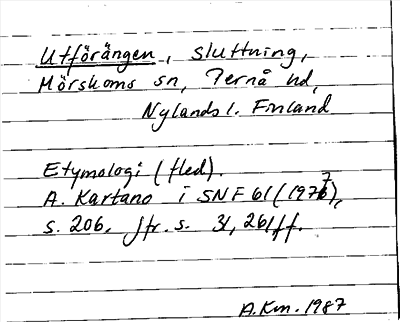 Utförängen, sluttning,
Mörskoms sn, Pernå hd,
Nylands l. Finland
Etymologi (fled).
A. Kartano i SNF 61 (1977),
s. 206. Jfr. s. 31, 261ff.
A.Km. 1987